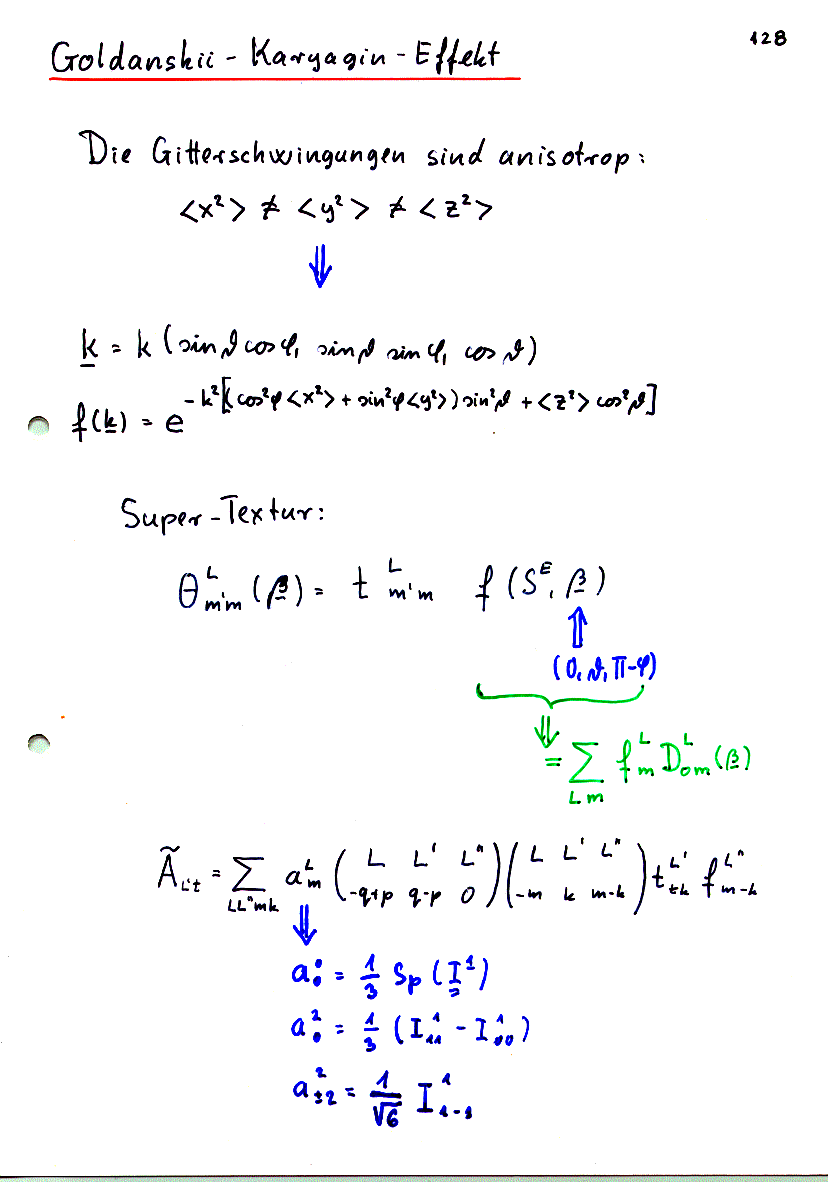 128
Goldanskii - Karyagin - Effekt
Die Gitterschwingungen sind anisotrop:
<x²> ≠ <y²> ≠ <z²>
⇓
k = k (sin ϑ cos φ, sin ϑ sin φ, cos ϑ)
f(k) = e^{-k²[(cos²φ <x²> + sin²φ <y²>) sin²ϑ + <z²> cos²ϑ]}
Super-Textur:
Θ^L_{m'm}(β) = t^L_{m'm} f(S^E, β)
⇑
(0, ϑ, π-φ)
⇓
= Σ_{Lm} f^L_m D^L_{om}(β)
Ã_{L't} = Σ_{LL"mk} a^L_m (L L' L" / -q+p q-p 0)(L L' L" / -m k m-k) t^{L'}_{tk} f^{L"}_{m-k}
⇓
a^0_0 = 1/3 Sp (I^1)
a^2_0 = 1/3 (I^1_{11} - I^1_{00})
a^2_{±2} = 1/√6 I^1_{1-1}